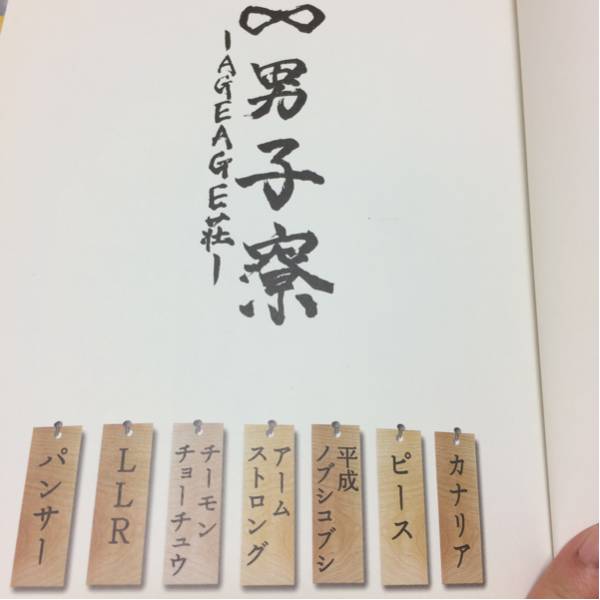 ∞男子寮
ーAGEAGE荘ー
カナリア
ピース
平成
ノブシコブシ
アーム
ストロング
チーモン
チョーチュウ
LLR
パンサー